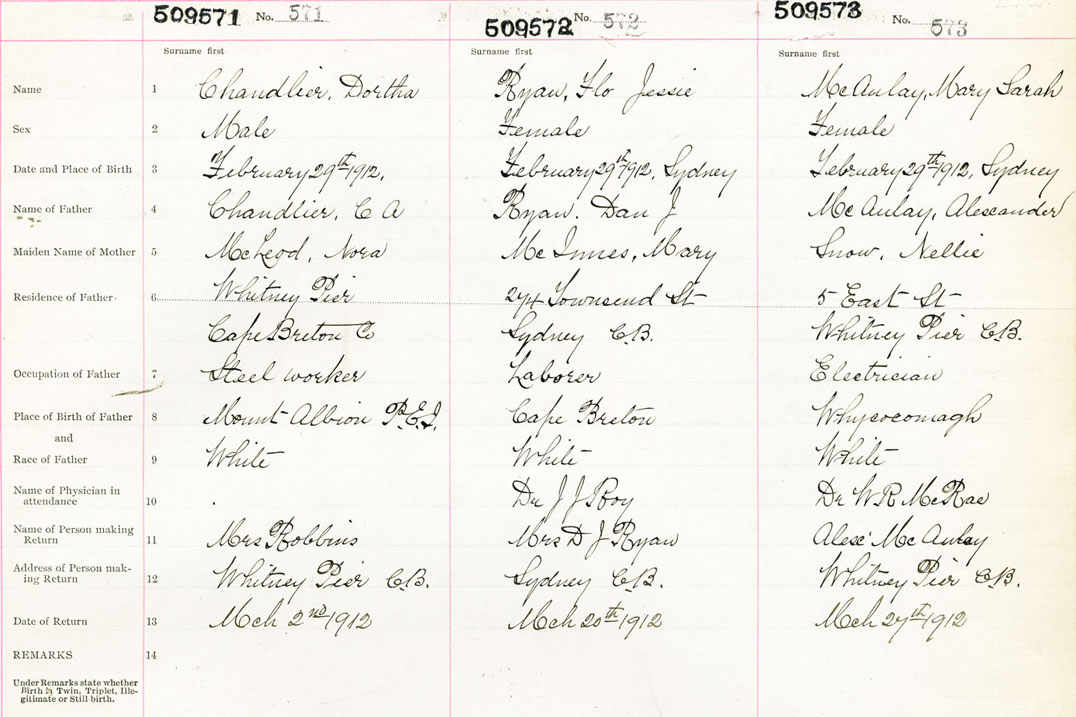 509571 No. 571 509572 No. 572 509573 No. 573
Surname first Surname first Surname first
Name 1 Chandlier, Dortha Ryan, Flo Jessie McAulay, Mary Sarah
Sex 2 Male Female Female
Date and Place of Birth 3 February 29th 1912, February 29th 1912, Sydney February 29th 1912, Sydney
Name of Father 4 Chandlier, C A Ryan. Dan J McAulay, Alexander
Maiden Name of Mother 5 McLeod, Nora McInnes, Mary Snow, Nellie
Residence of Father 6 Whitney Pier 274 Townsend St 5 East St
Cape Breton Co Sydney C.B. Whitney Pier C.B.
Occupation of Father 7 Steel worker Laborer Electrician
Place of Birth of Father 8 Mount Albion P.E.I. Cape Breton Whycocomagh
and
Race of Father 9 White White White
Name of Physician in
attendance 10 Dr J J Roy Dr W R McRae
Name of Person making
Return 11 Mrs Robbins Mrs D J Ryan Alex McAulay
Address of Person mak-
ing Return 12 Whitney Pier C.B. Sydney C.B. Whitney Pier C.B.
Date of Return 13 Mch 2nd 1912 Mch 20th 1912 Mch 27th 1912
REMARKS 14
Under Remarks state whether
Birth is Twin, Triplet, Ille-
gitimate or Still-birth.